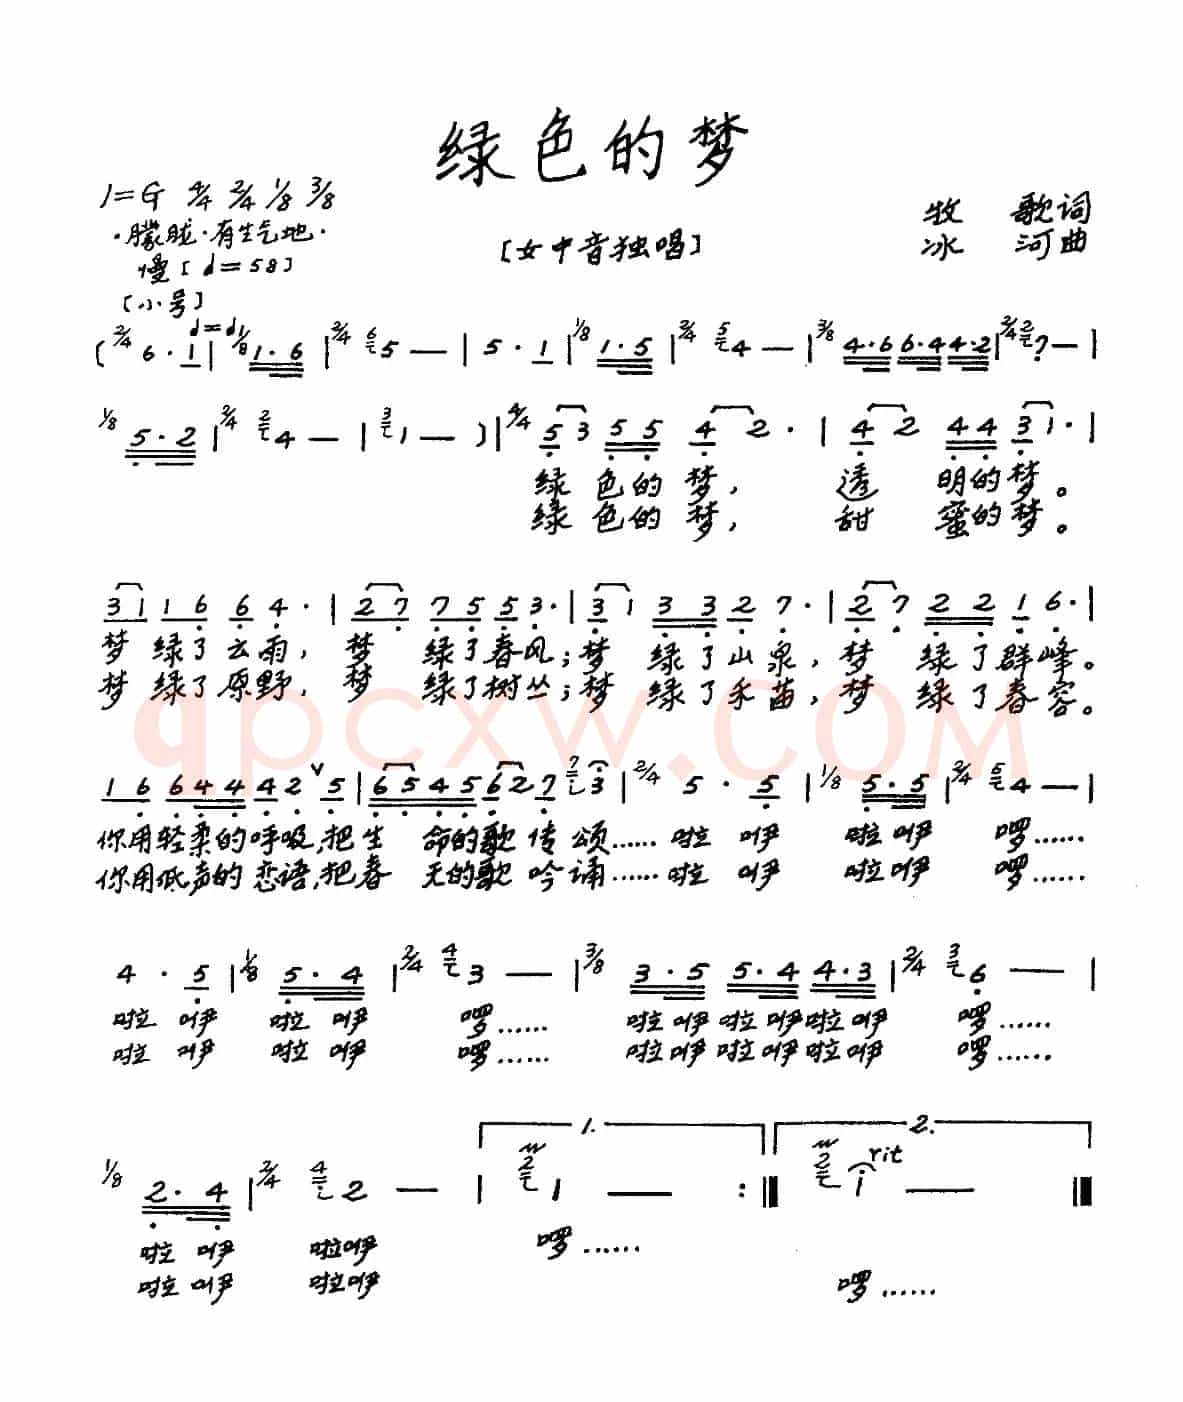 绿色的梦
1=G 4/4 2/4 1/8 3/8
·朦胧·有生气地·
慢〔♩=58〕
〔小号〕
〔女中音独唱〕
牧 歌词
冰 河曲
( 2/4 6·1 | 1/8 1·6 | 2/4 5— | 5·1 | 1/8 1·5 | 2/4 4— | 3/8 4·6 6·4 4·2 | 2/4 7— |
1/8 5·2 | 2/4 4— | 1— ) | 4/4 5 3 5 5 4 2· | 4 2 4 4 3 1· |
绿 色的 梦, 透 明的梦。
绿 色的 梦, 甜 蜜的梦。
3 1 1 6 6 4· | 2 7 7 5 5 3· | 3 1 3 3 2 7· | 2 7 2 2 1 6· |
梦 绿了云雨, 梦 绿了春风;梦 绿了山泉,梦 绿了群峰。
梦 绿了原野, 梦 绿了树丛;梦 绿了禾苗,梦 绿了春容。
qpcxw.COM
1 6 6 4 4 4 2 ∨ 5 | 6 5 4 5 6 2 7 3 | 2/4 5·5 | 1/8 5·5 | 2/4 4— |
你用轻柔的呼吸,把生 命的歌传颂……啦 咿 啦咿 啰……
你用低声的恋语,把春 天的歌吟诵……啦 咿 啦咿 啰……
4·5 | 1/8 5·4 | 2/4 3— | 3/8 3·5 5·4 4·3 | 2/4 6— |
啦 咿 啦 咿 啰…… 啦咿啦咿啦咿 啰……
啦 咿 啦 咿 啰…… 啦咿啦咿啦咿 啰……
1. 2.
rit
1/8 2·4 | 2/4 2— | 1— :‖ 1— ‖
啦 咿 啦咿 啰……
啦 咿 啦咿 啰……